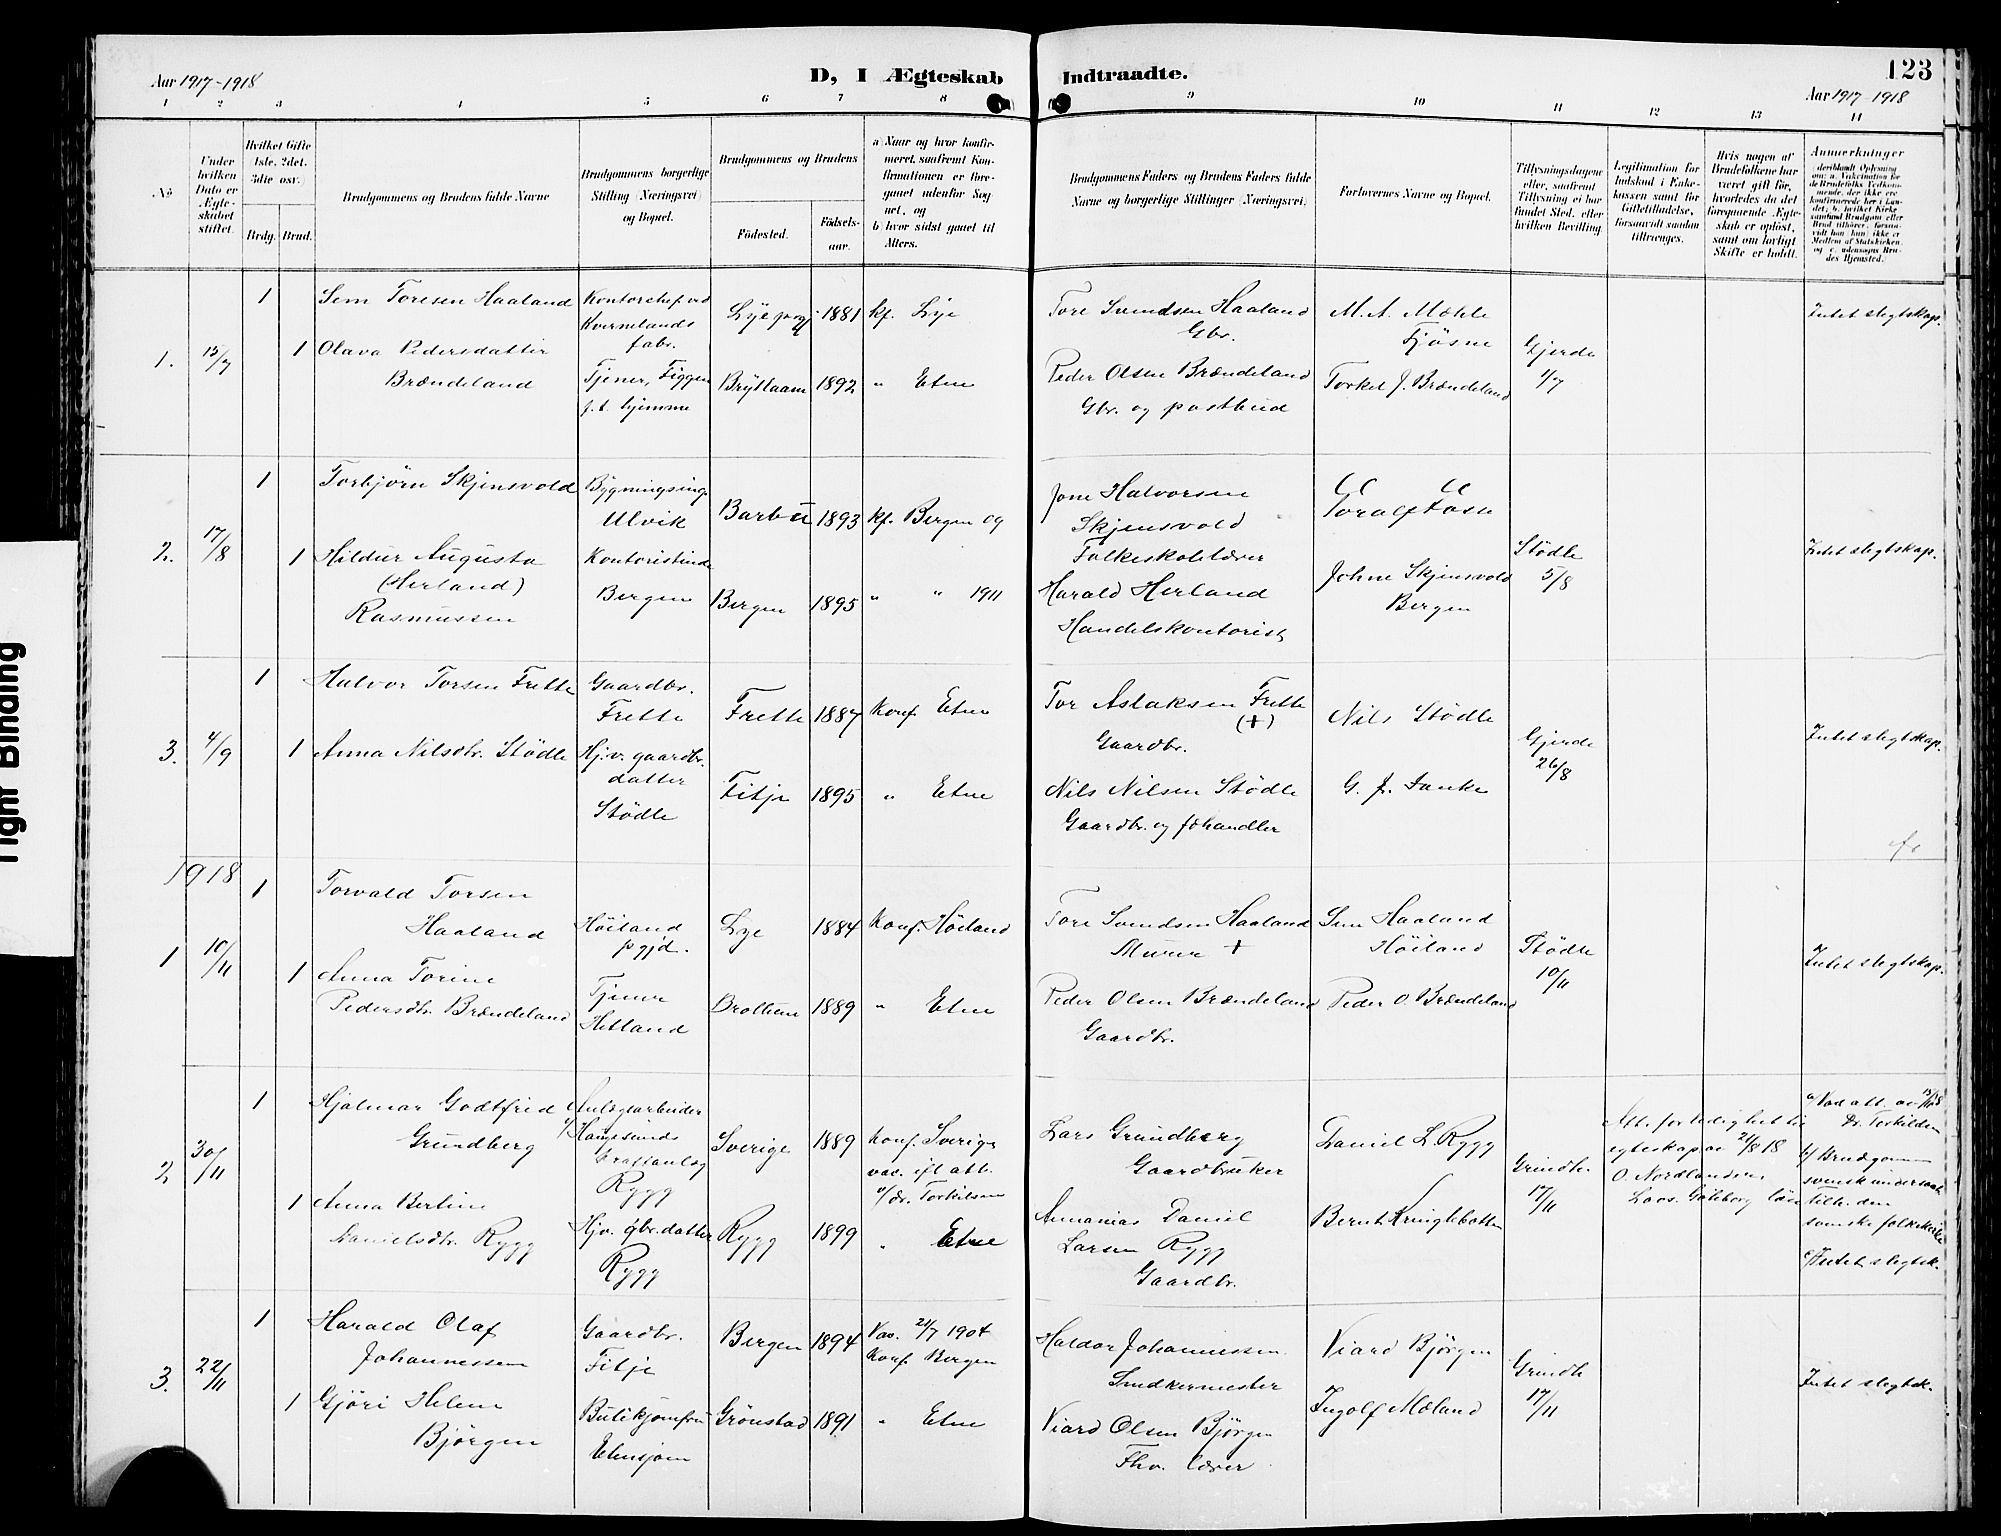 Aar 1917-1918
D, I Ægteskab
Indtraadte.
123
Aar 1917-1918
1 2 3 4 5 6 7 8 9 10 11 12 13 14
No
Under hvilken Dato er Ægteskabet stiftet.
Hvilket Gifte 1ste. 2det. 3die osv.
Brdg. Brud.
Brudgommens og Brudens fulde Navne
Brudgommens borgerlige Stilling (Næringsvei) og Bopæl.
Brudgommens og Brudens
Födested.
Födsels-aar.
a) Naar og hvor konfirmeret, saafremt Konfirmationen er foregaaet udenfor Sognet, og
b) hvor sidst gaaet til Alters.
Brudgommens Faders og Brudens Faders fulde Navne og borgerlige Stillinger (Næringsvei).
Forlovernes Navne og Bopæl.
Tillysningsdagene eller, saafremt Tillysning ei har fundet Sted, efter hvilken Bevilling
Legitimation for Indskud i Enkekassen samt for Giftetilladelse, forsaavidt saadan tiltrænges.
Hvis nogen af Brudefolkene har været gift för, hvorledes da det foregaaende Ægteskab er oplöst, samt om lovligt Skifte er holdt.
Anmærkninger
1. 15/7
1 Sem Toresen Haaland
Kontorchef ved Kvernelands fabr.
Lye pgj. 1881 kf. Lye
Tore Svendsen Haaland
Gbr.
M. A. Mæhle
Fjøsne
Gjerde
1/7
Intet slegtskap.
1 Olava Pedersdatter
Brændeland
Tjener, Figgen
p.t. hjemme
1892 " Etne
Peder Olsen Brændeland
Gbr. og postbud
Torkel J. Brændeland
2. 17/8
1 Torbjörn Skjensvold
Bygningsing.
Ulvik
Barbu 1893 kf. Bergen og
Jone Halvorsen
Skjensvold
Folkeskolelærer
Stödle
5/8
Intet slegtskap.
1 Hildur Augusta
(Herland)
Rasmussen
Kontoristinde
Bergen
Bergen 1895 " " 1911
Harald Herland
Handelskontorist
Johne Skjensvold
Bergen
3. 4/9
1 Halvor Torsen Frette
Gaardbr.
Frette
Frette 1887 Konf. Etne
Tor Aslaksen Frette
(+)
Gaardbr.
Nils Stödle
Gjerde
26/8
Intet slegtskap.
1 Anna Nilsdtr. Stödle
Hj.v. gaardbr.
datter
Stödle
Fitje 1895 " Etne
Nils Nilsen Stödle
Gaardbr. og fehandler
G. J. Fanke
1918
1 10/11
1 Torvald Torsen
Haaland
Höiland
pgjd.
Lye 1884 Konf. Höiland
Tore Svendsen Haaland
Murer +
Sem Haaland
Höiland
Stödle
10/11
Intet slegtskap.
1 Anna Torine
Pedersdtr. Brændeland
Tjener
Hetland
1889 " Etne
Peder Olsen Brændeland
Gaardbr.
Peder O. Brændeland
2 30/11
1 Hjalmar Godtfrid
Grundberg
Anlegsarbeider
v/Haugesunds
Kraftanlæg
Rygg
Sverige 1889 Konf. Sverige
vac. ifl. att.
v/dr. Torkilsen
Lars Grundberg
Gaardbruker
Daniel L. Rygg
Grindh.
17/11
Att. for ledighet til
egteskap av 21/8 18
O. Nordlander
a/ Vac. att. av 15/10 18
Dr. Torkildsen
b/ Brudgommen
svensk undersaat,
tilh. den
svenske folkekirke
c/ Intet slegtsk.
1 Anna Bertine
Danielsdtr. Rygg
Hjv. gbr. datter
Rygg
Rygg 1899 " Etne
Annanias Daniel
Larsen Rygg
Gaardbr.
Bernt Kringlebotten
3. 22/11
1 Harald Olaf
Johannessen
Gaardbr.
Fitje
Bergen 1894 Vac. 21/7 1904
Konf. Bergen
Haldor Johannessen
Smedkermester
Viard Björgen
Grindh.
17/11
Intet slegtsk.
1 Gjöri Helene
Björgen
Butikjomfru
Etnesjøen
Grönstad 1891 " Etne
Viard Olsen Björgen
Fhv. lærer
Ingolf Mæland
Tight Binding